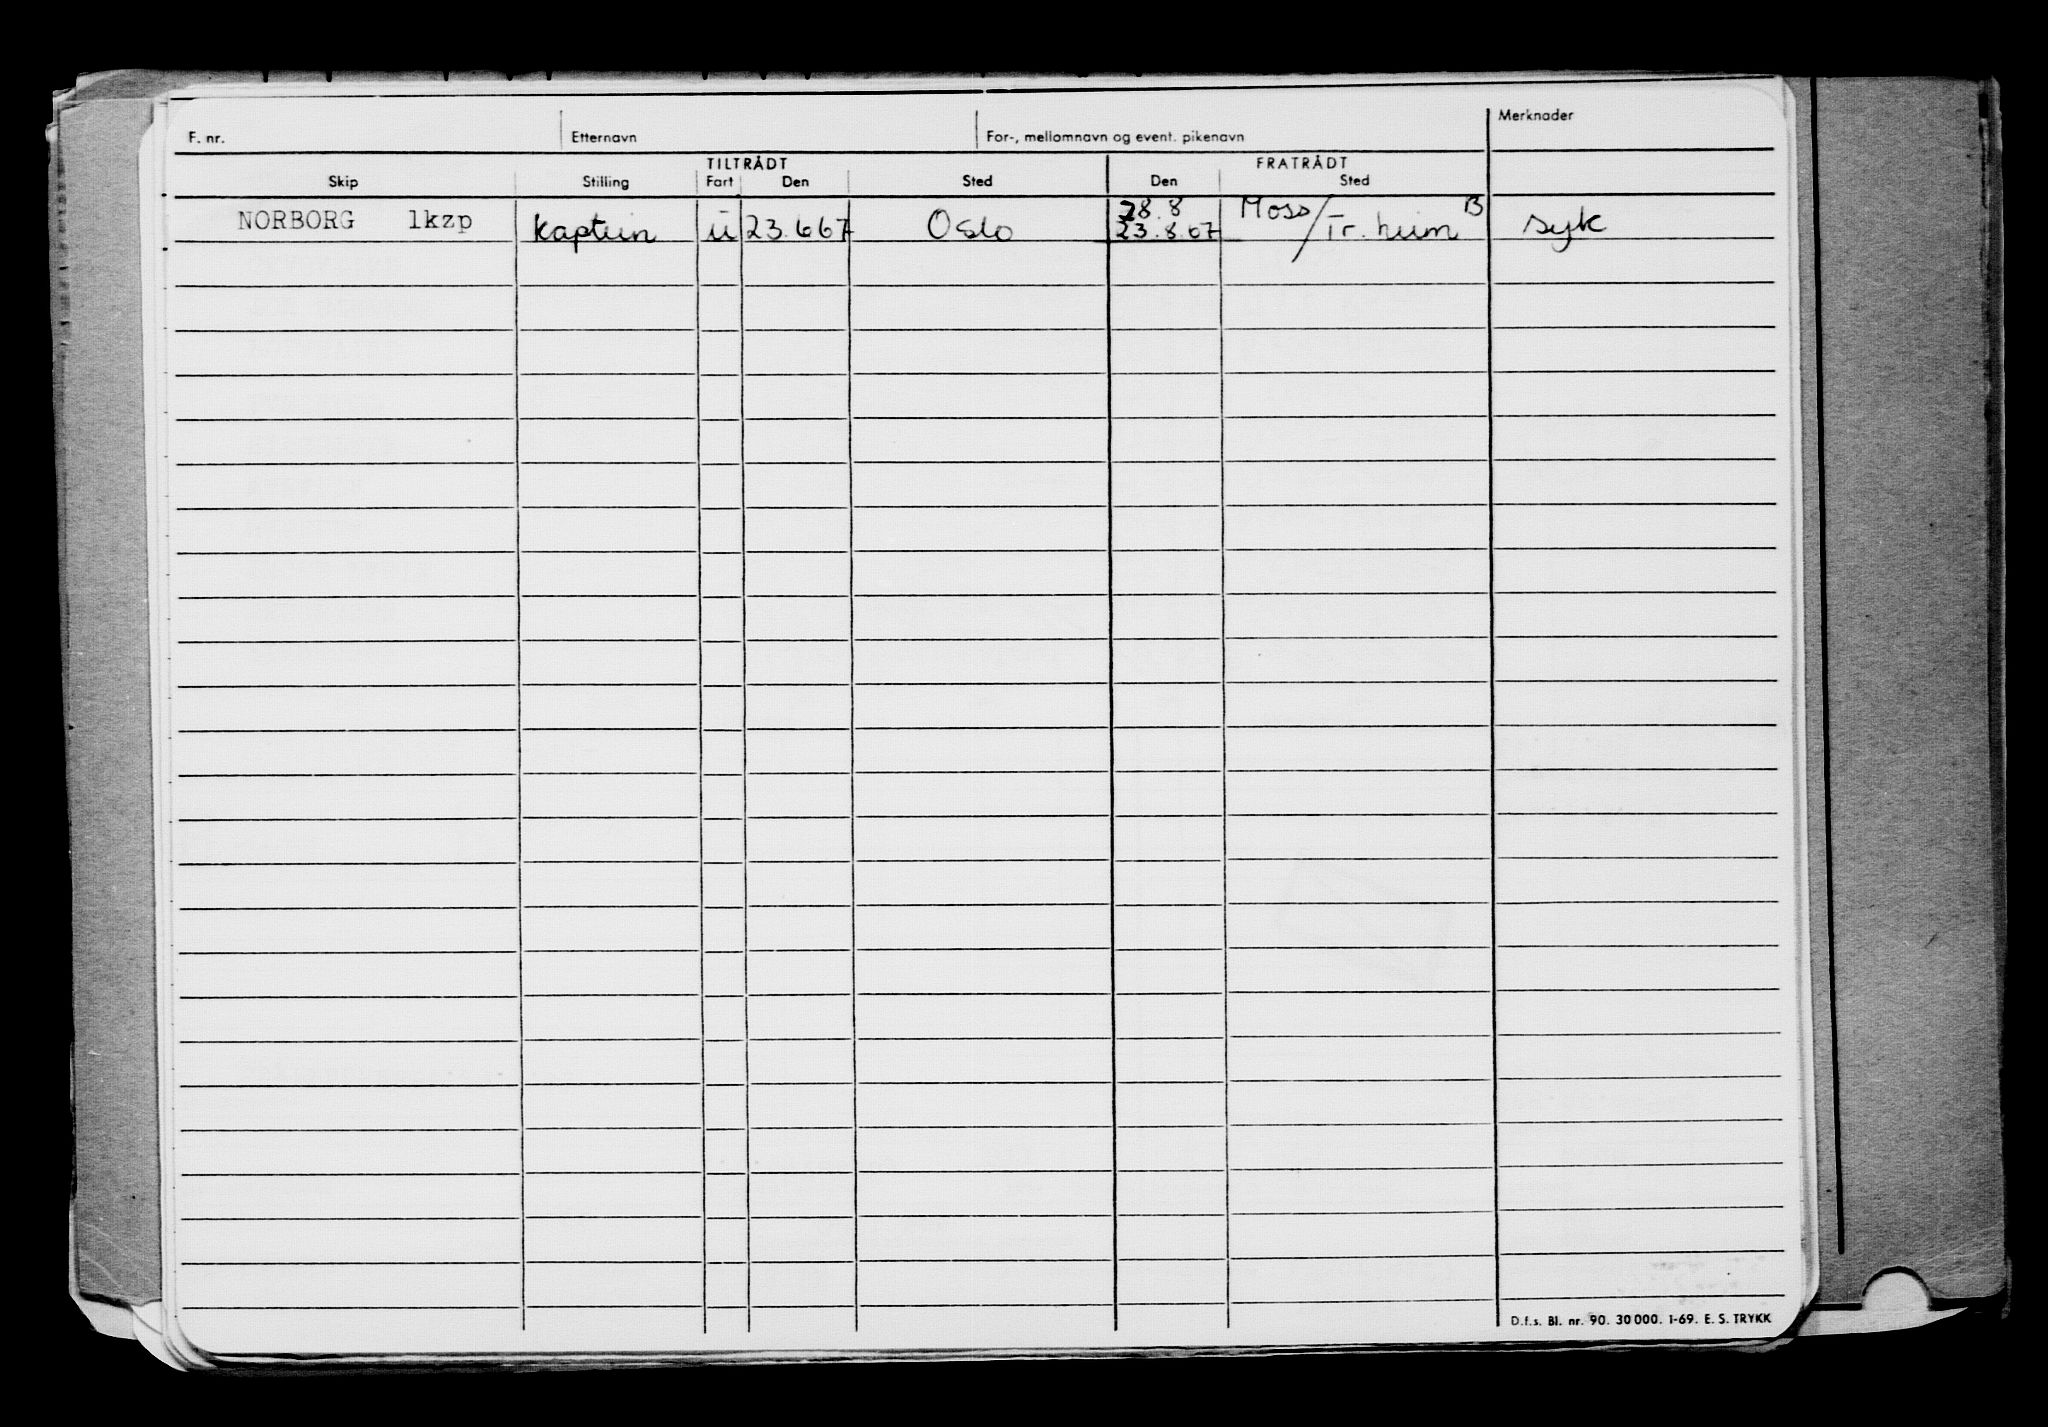 F. nr. Etternavn For-, mellomnavn og event. pikenavn Merknader
TILTRÅDT FRATRÅDT
Skip Stilling Fart Den Sted Den Sted
28.8 Moss/ B
NORBORG lkzp kaptein u 23.6 67 Oslo 23.8.67 Tr. heim syk
D.f.s. Bl. nr. 90. 30 000. 1-69. E. S. TRYKK